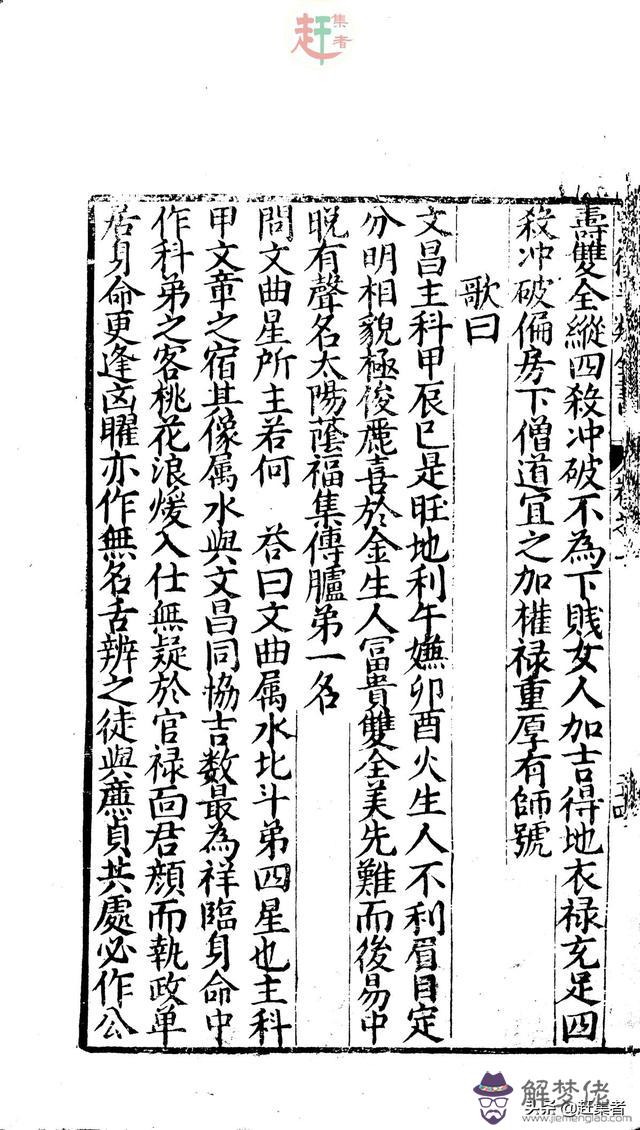 赶集者
壽雙全縱四殺冲破不為下賤女人加吉得地衣禄充足四
殺冲破偏房下僧道宜之加權禄重厚有師號
歌曰
文昌主科甲辰巳是旺地利午嫌卯酉火生人不利眉目定
分明相貌極俊麗喜於金生人冨貴雙全美先難而後易中
晩有聲名太陽蔭福集傳臚弟一名
問文曲星所主若何 荅曰文曲属水北斗弟四星也主科
甲文章之宿其像属水與文昌同協吉数最為祥臨身命中
作科弟之客桃花浪煖入仕無疑於官禄面君顔而執政单
居身命更逢凶曜亦作無名舌辨之徒與廉貞共處必作公
头条@赶集者
解梦佬
www.jiemenglab.com